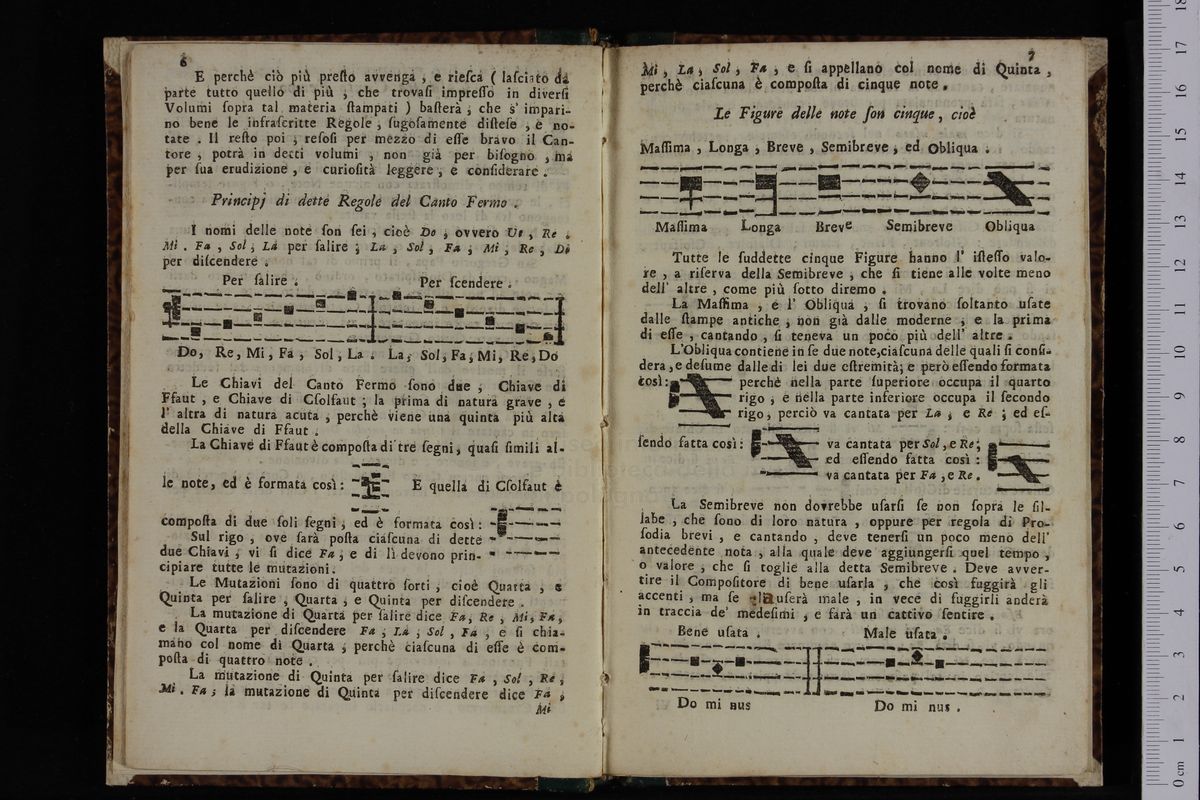 6
E perchè ciò più preſto avvenga , e rieſca ( laſciato da
parte tutto quello di più , che trovaſi impreſſo in diverſi
Volumi ſopra tal materia ſtampati ) baſterà , che s' impari-
no bene le infraſcritte Regole , ſugoſamente diſteſe , e no-
tate . Il reſto poi , reſoſi per mezzo di eſſe bravo il Can-
tore , potrà in detti volumi , non già per biſogno , ma
per ſua erudizione , e curioſità leggere , e conſiderare .
Principj di dette Regole del Canto Fermo .
I nomi delle note ſon ſei , cioè Do , ovvero Ut , Re .
Mi . Fa , Sol , La per ſalire ; La , Sol , Fa , Mi , Re , Do
per diſcendere .
Per ſalire . Per ſcendere .
Do, Re, Mi, Fa , Sol, La . La, Sol, Fa, Mi, Re, Do
Le Chiavi del Canto Fermo ſono due , Chiave di
Ffaut , e Chiave di Cſolfaut ; la prima di natura grave , e
l' altra di natura acuta , perchè viene una quinta più alta
della Chiave di Ffaut .
La Chiave di Ffaut è compoſta di tre ſegni, quaſi ſimili al-
le note, ed è formata così : E quella di Cſolfaut è
compoſta di due ſoli ſegni , ed è formata così :
Sul rigo , ove ſarà poſta ciaſcuna di dette
due Chiavi , vi ſi dice Fa , e di lì devono prin-
cipiare tutte le mutazioni.
Le Mutazioni ſono di quattro ſorti , cioè Quarta , e
Quinta per ſalire , Quarta , e Quinta per diſcendere .
La mutazione di Quarta per ſalire dice Fa, Re , Mi, Fa,
e la Quarta per diſcendere Fa , La , Sol , Fa , e ſi chia-
mano col nome di Quarta , perchè ciaſcuna di eſſe è com-
poſta di quattro note .
La mutazione di Quinta per ſalire dice Fa , Sol , Re ,
Mi . Fa ; la mutazione di Quinta per diſcendere dice Fa ,
Mi
7
Mi , La , Sol , Fa , e ſi appellano col nome di Quinta ,
perchè ciaſcuna è compoſta di cinque note .
Le Figure delle note ſon cinque, cioè
Maſſima , Longa , Breve , Semibreve , ed Obliqua .
Maſſima Longa Breve Semibreve Obliqua
Tutte le ſuddette cinque Figure hanno l' iſteſſo valo-
re , a riſerva della Semibreve , che ſi tiene alle volte meno
dell' altre , come più ſotto diremo .
La Maſſima , e l' Obliqua , ſi trovano ſoltanto uſate
dalle ſtampe antiche , non già dalle moderne , e la prima
di eſſe , cantando , ſi teneva un poco più dell' altre .
L'Obliqua contiene in ſe due note,ciaſcuna delle quali ſi conſi-
dera, e deſume dalle di lei due eſtremità; e però eſſendo formata
così: perchè nella parte ſuperiore occupa il quarto
rigo , e nella parte inferiore occupa il ſecondo
rigo, perciò va cantata per La , e Re ; ed eſ-
ſendo fatta così : va cantata per Sol , e Re ;
ed eſſendo fatta così :
va cantata per Fa , e Re .
La Semibreve non dovrebbe uſarſi ſe non ſopra le ſil-
labe , che ſono di loro natura , oppure per regola di Pro-
ſodia brevi , e cantando , deve tenerſi un poco meno dell'
antecedente nota , alla quale deve aggiungerſi quel tempo ,
o valore , che ſi toglie alla detta Semibreve . Deve avver-
tire il Compoſitore di bene uſarla , che così fuggirà gli
accenti , ma ſe la uſerà male , in vece di fuggirli anderà
in traccia de' medeſimi , e farà un cattivo ſentire .
Bene uſata . Male uſata .
Do mi nus Do mi nus .
0 cm 1 2 3 4 5 6 7 8 9 10 11 12 13 14 15 16 17 18